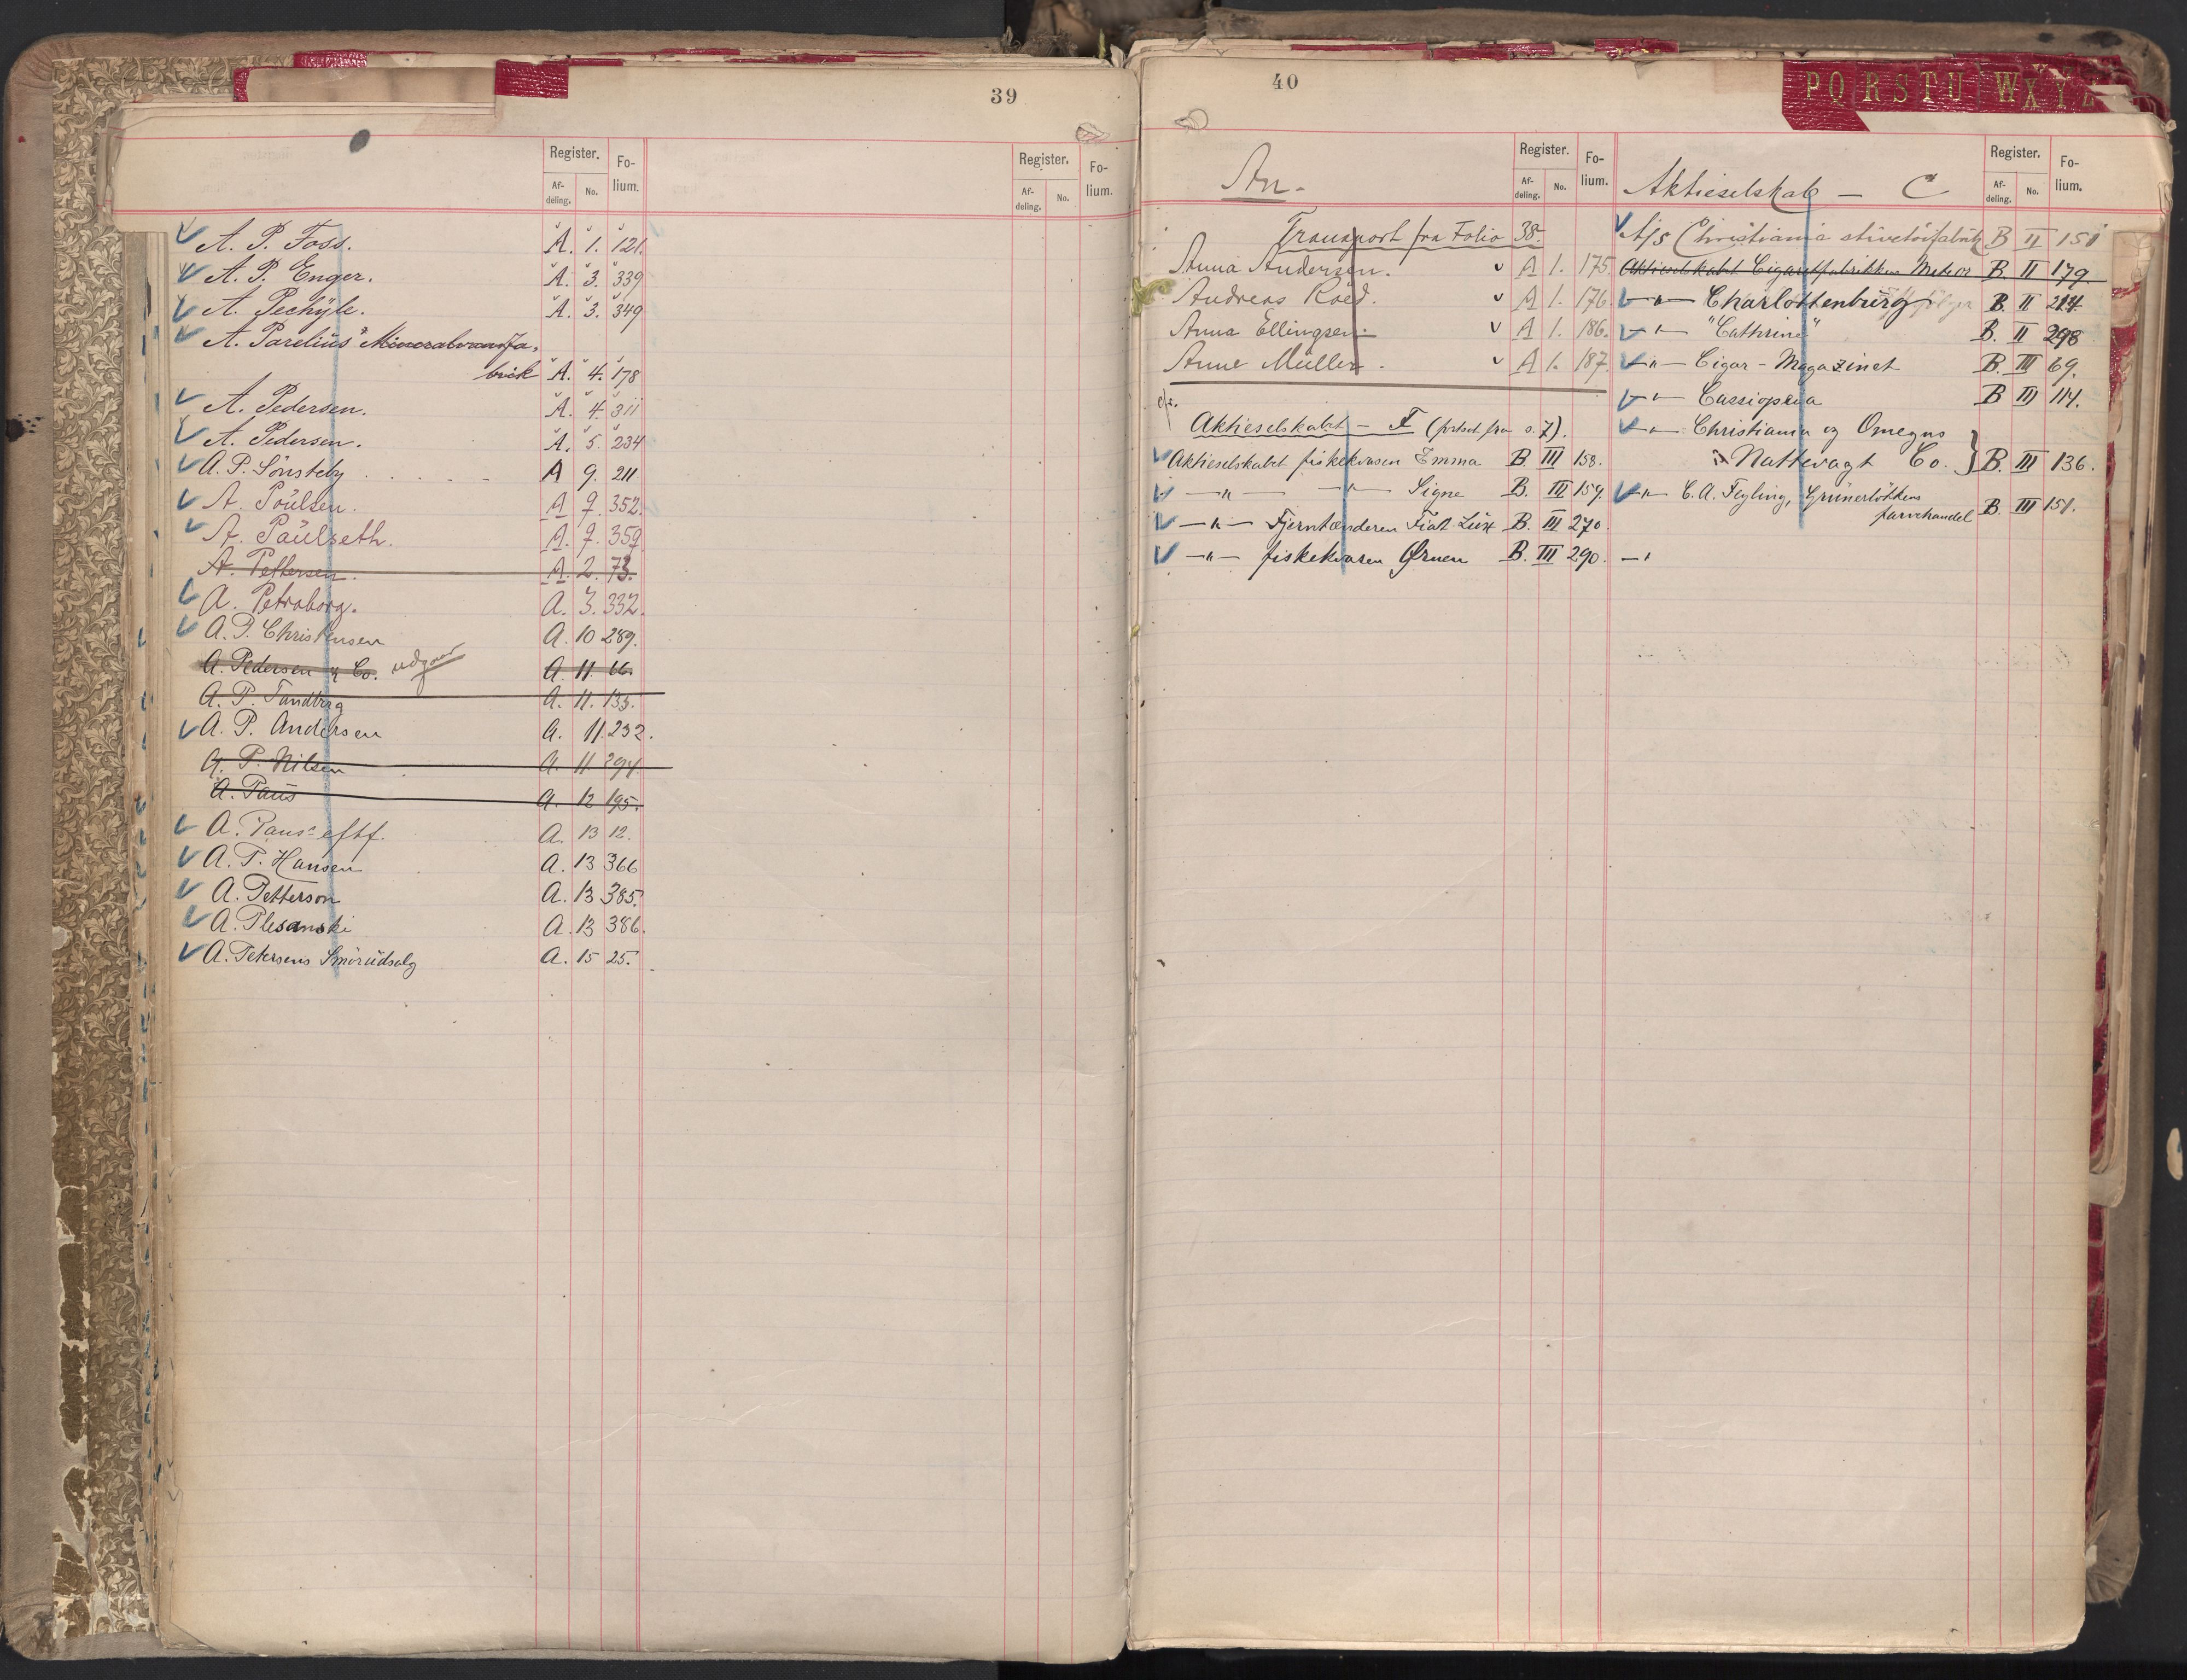 39
Register. Fo-
lium.
Af-
deling. No.
Register. Fo-
lium.
Af-
deling. No.
A. P. Foss. A. 1. 121.
A. P. Enger. A. 3. 339
A. Pechüle. A. 3. 349
A. Parelius' Mineralvandfa-
brik A. 4. 178
A. Pedersen. A. 4. 311
A. Pedersen. A. 5. 234
A. P. Sönsteby A 9. 211
A. Poulsen. A 7. 352.
A. Paulseth. A. 7. 359
A. Pettersen. A. 2. 73.
A. Petraborg. A. 3. 332.
A. P. Christensen A. 10 289.
A. Pedersen & Co. udgaar A. 11. 66.
A. P. Sandberg A. 11. 135.
A. P. Andersen A. 11. 232.
A. P. Nilsen A. 11. 294.
A. Paus A. 12 195.
A. Paus' eftf. A. 13 12.
A. P. Hansen A. 13 366
A. Petterson A. 13 385.
A. Plesanski A. 13 386.
A. Petersens Smörudsalg A. 15 25.
40
PQ RSTU WXYZ
An.
Register. Fo-
lium.
Af-
deling. No.
Transport fra Folio 38.
Anna Andersen. A 1. 175.
Andreas Röed. A 1. 176.
Anna Ellingsen. A 1. 186.
Anne Müller. A 1. 187.
cfr.
Aktieselskabet - F (fortsat fra s. 7).
Aktieselskabet fiskekvasen Emma B. III 158.
—"— —"— Signe B. III 159.
—"— Fjerntænderen Fiat Lux B. III 270
—"— fiskekvasen Ørnen B. III 290.
Aktieselskab — C
Register. Fo-
lium.
Af-
deling. No.
A/s Christiania stivetöifabrik B II 151
Aktieselskabet Cigaretfabrikken Meteor B. II 179
—"— Charlottenburg B. II 214.
—"— "Cathrine" B. II 298
—"— Cigar-Magazinet B. III 69.
—"— Cassiopeia B III 114.
—"— Christiania og Omegns
Nattevagt Co. } B. III 136.
—"— C. A. Fegling, Grünerlökkens
farvehandel B. III 151.
—"